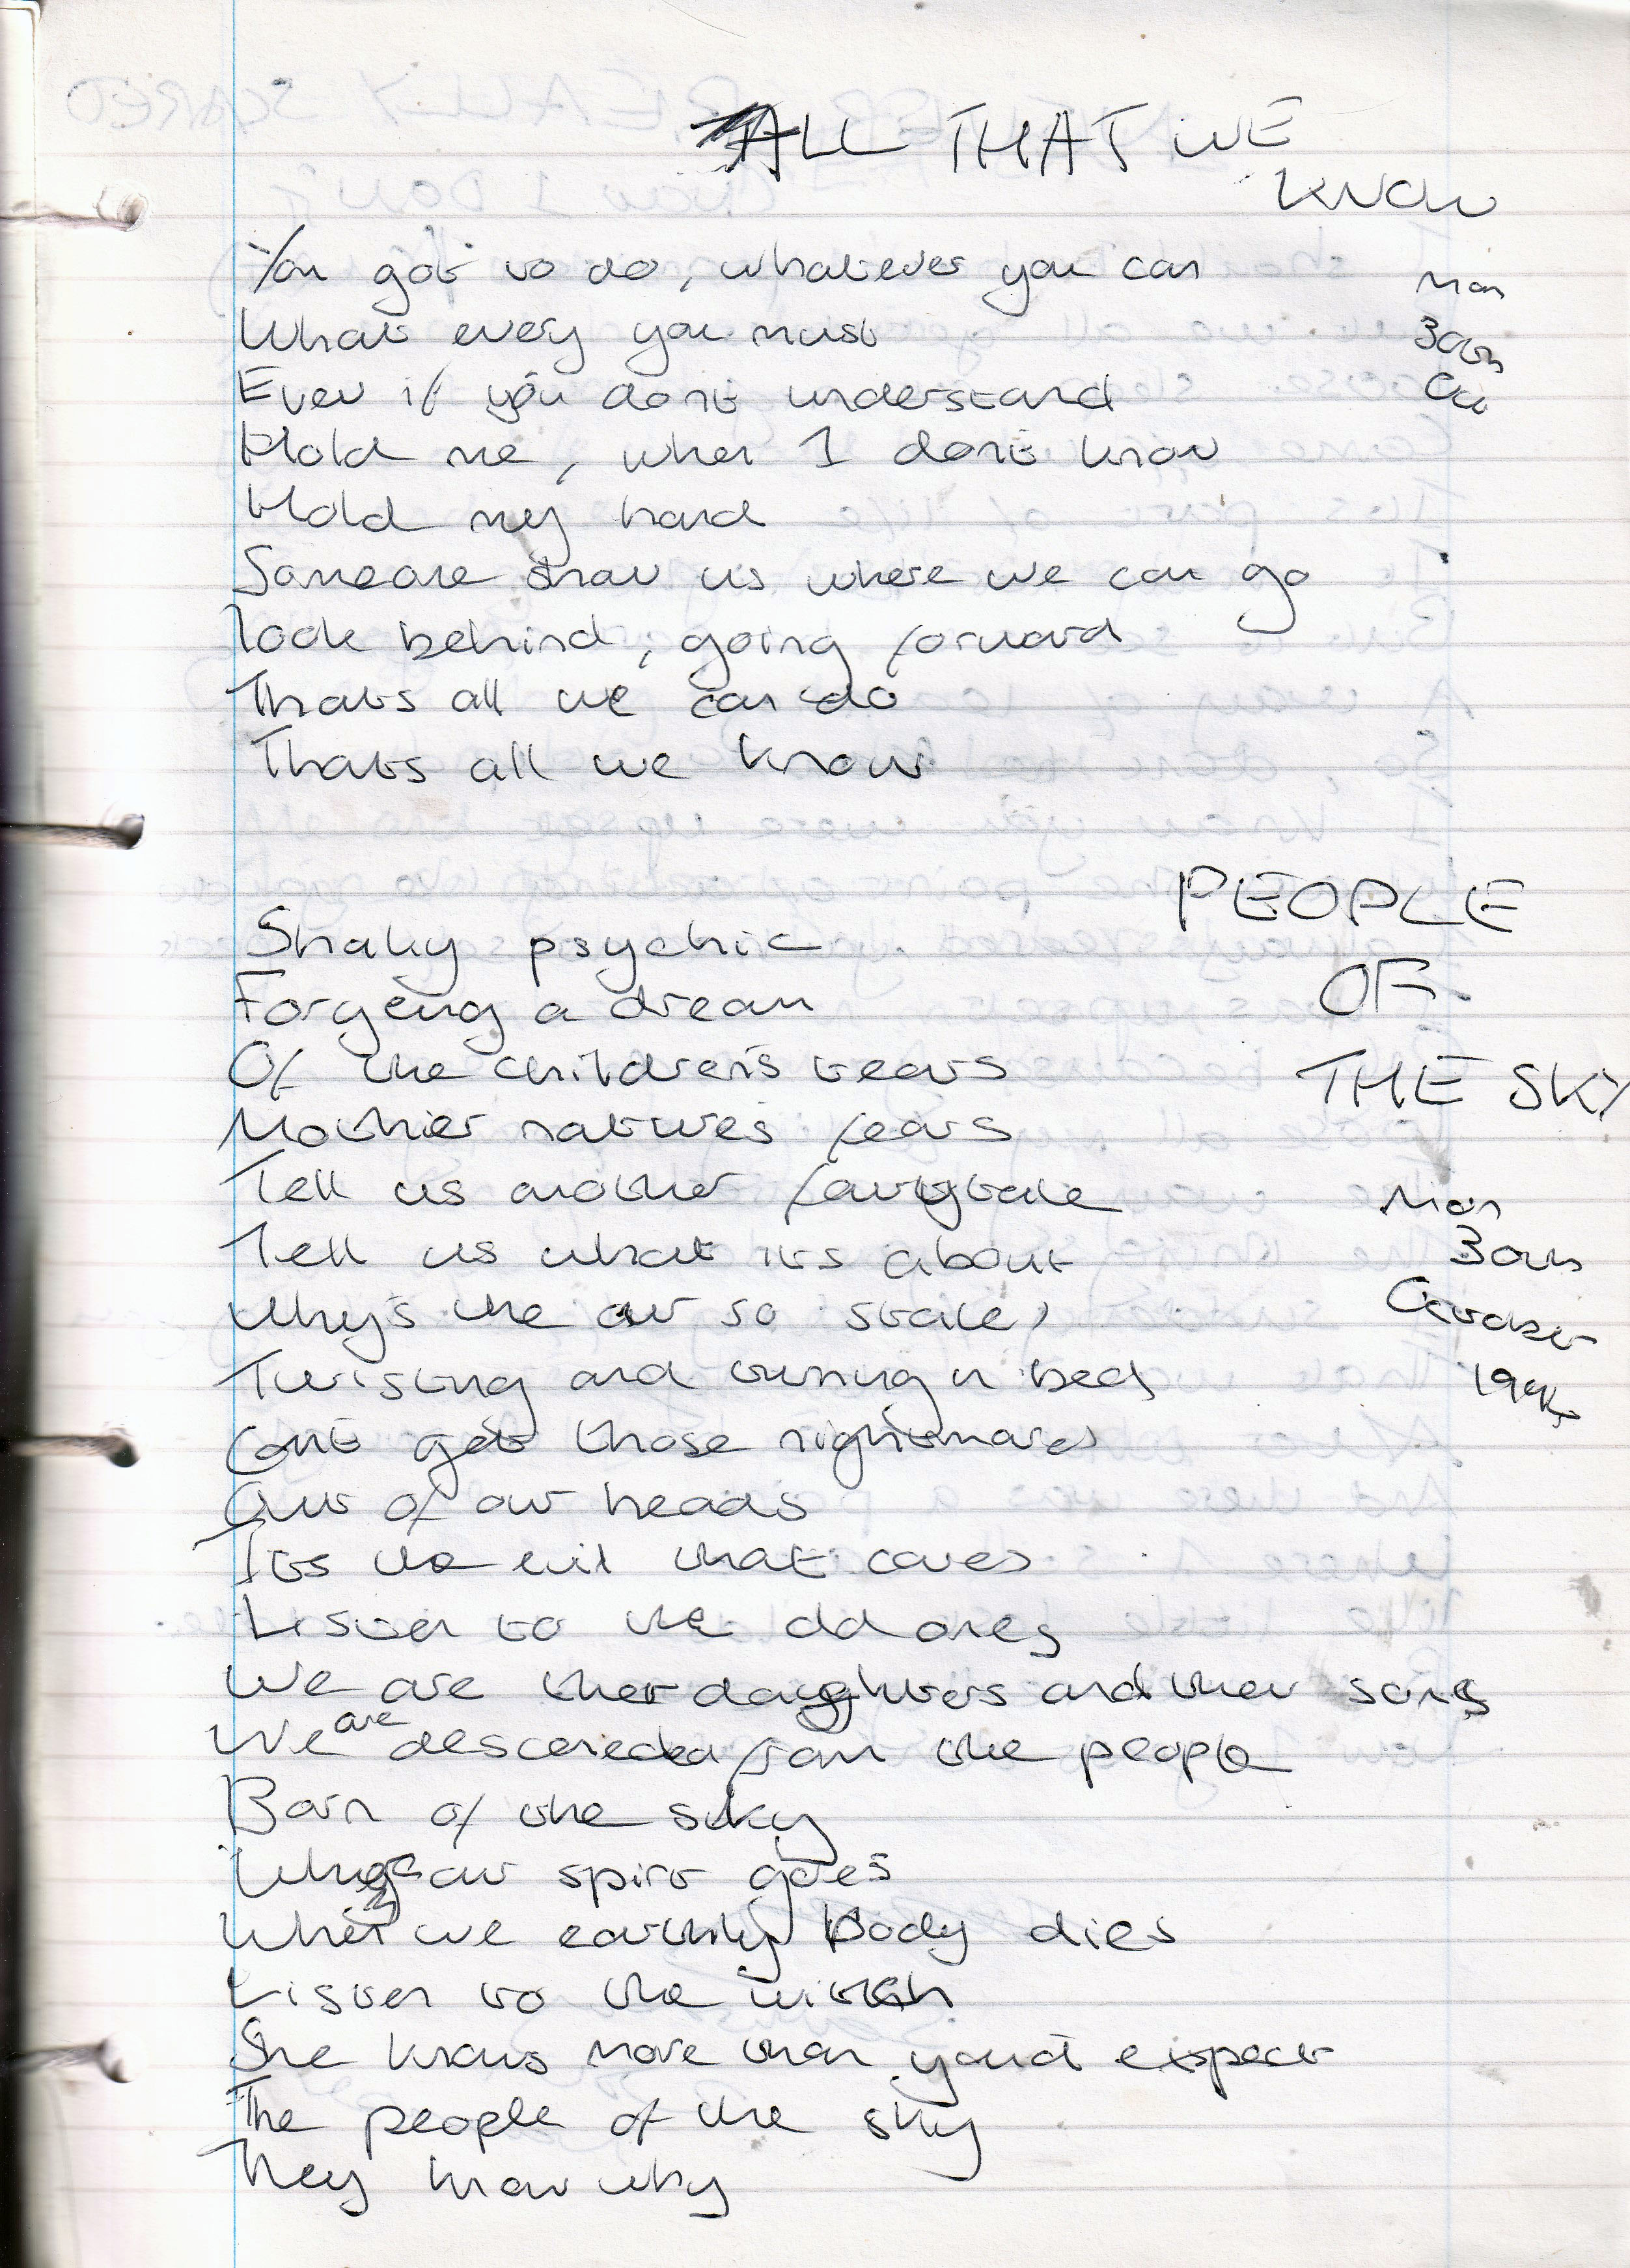 ALL THAT WE
KNOW
You got to do, whatever you can
What every you must
Even if you dont understand
Hold me, when I dont know
Hold my hand
Someone show us where we can go
look behind, going forward
Thats all we can do
Thats all we know
Mon
30th
Oct
PEOPLE
OF
THE SKY
Shaky psychic
Forgeing a dream
Of the children's tears
Mother natures fears
Tell us another fairytale
Tell us what its about
Why's the air so stale?
Twisting and turning in bed
Cant get those nightmares
Out of our heads
Its the evil that
Listen to the old ones
We are their daughters and their sons
We are descended from the people
Born of the sky
our spirit goes
When we earthly body dies
Listen to the witch
She knows more than you'd expect
The people of the sky
They know why
Mon
30th
October